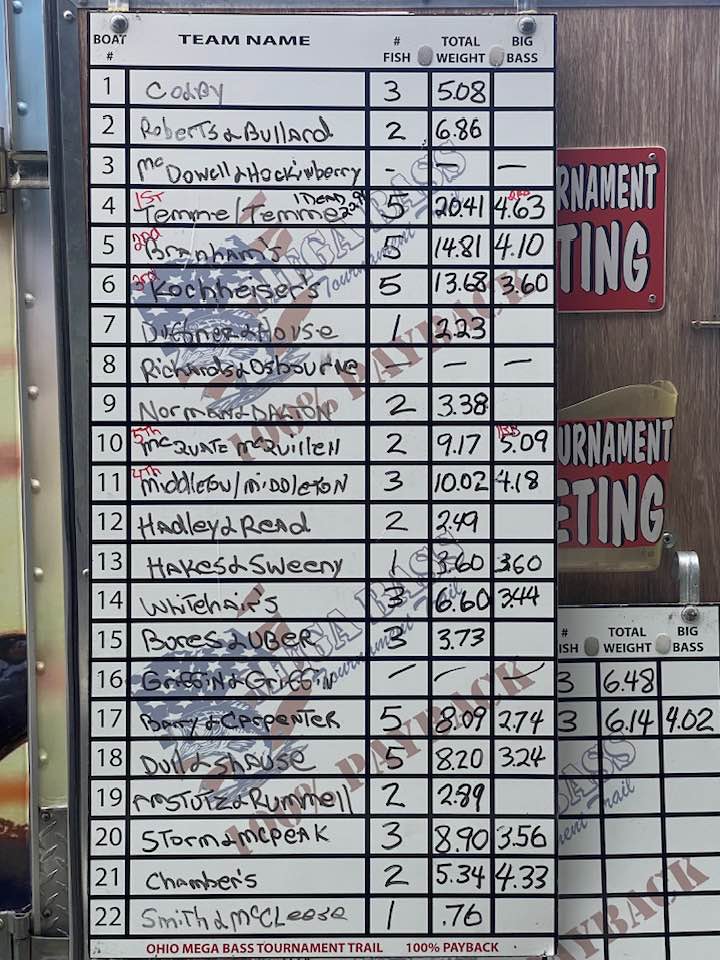 BOAT # TEAM NAME # FISH TOTAL WEIGHT BIG BASS
1 Cody 3 5.08
2 Roberts & Bullard 2 6.86
3 McDowell & Hockinberry - - -
4 1ST Temme/Temme 1 DEAD 5 20.41 4.63
5 2nd Branham's 5 14.81 4.10
6 3rd Kochheiser's 5 13.68 3.60
7 & House 1 2.23
8 Richards & Osbourne - - -
9 Norman & DALTON 2 3.38
10 5th McQuate McQuillen 2 9.17 1st 5.09
11 4th Middleton/Middleton 3 10.02 4.18
12 Hadley & Read 2 2.49
13 Hakes & Sweeny 1 3.60 3.60
14 Whitehair's 3 6.60 3.44
15 Bores & UBER 3 3.73
16 Griffin & Griffin - - -
17 Barry & Carpenter 5 8.09 2.74
18 Dull & Shause 5 8.20 3.24
19 Amstutz & Rummell 2 2.89
20 Storm & McPeak 3 8.90 3.56
21 Chamber's 2 5.34 4.33
22 Smith & McCleese 1 .76
OHIO MEGA BASS TOURNAMENT TRAIL 100% PAYBACK
MEGA BASS
Tournament Trail
100% PAYBACK
MEGA BASS
Tournament Trail
100% PAYBACK
RNAMENT
TING
URNAMENT
ETING
# ISH TOTAL WEIGHT BIG BASS
3 6.48
3 6.14 4.02
BASS
ment Trail
PAYBACK